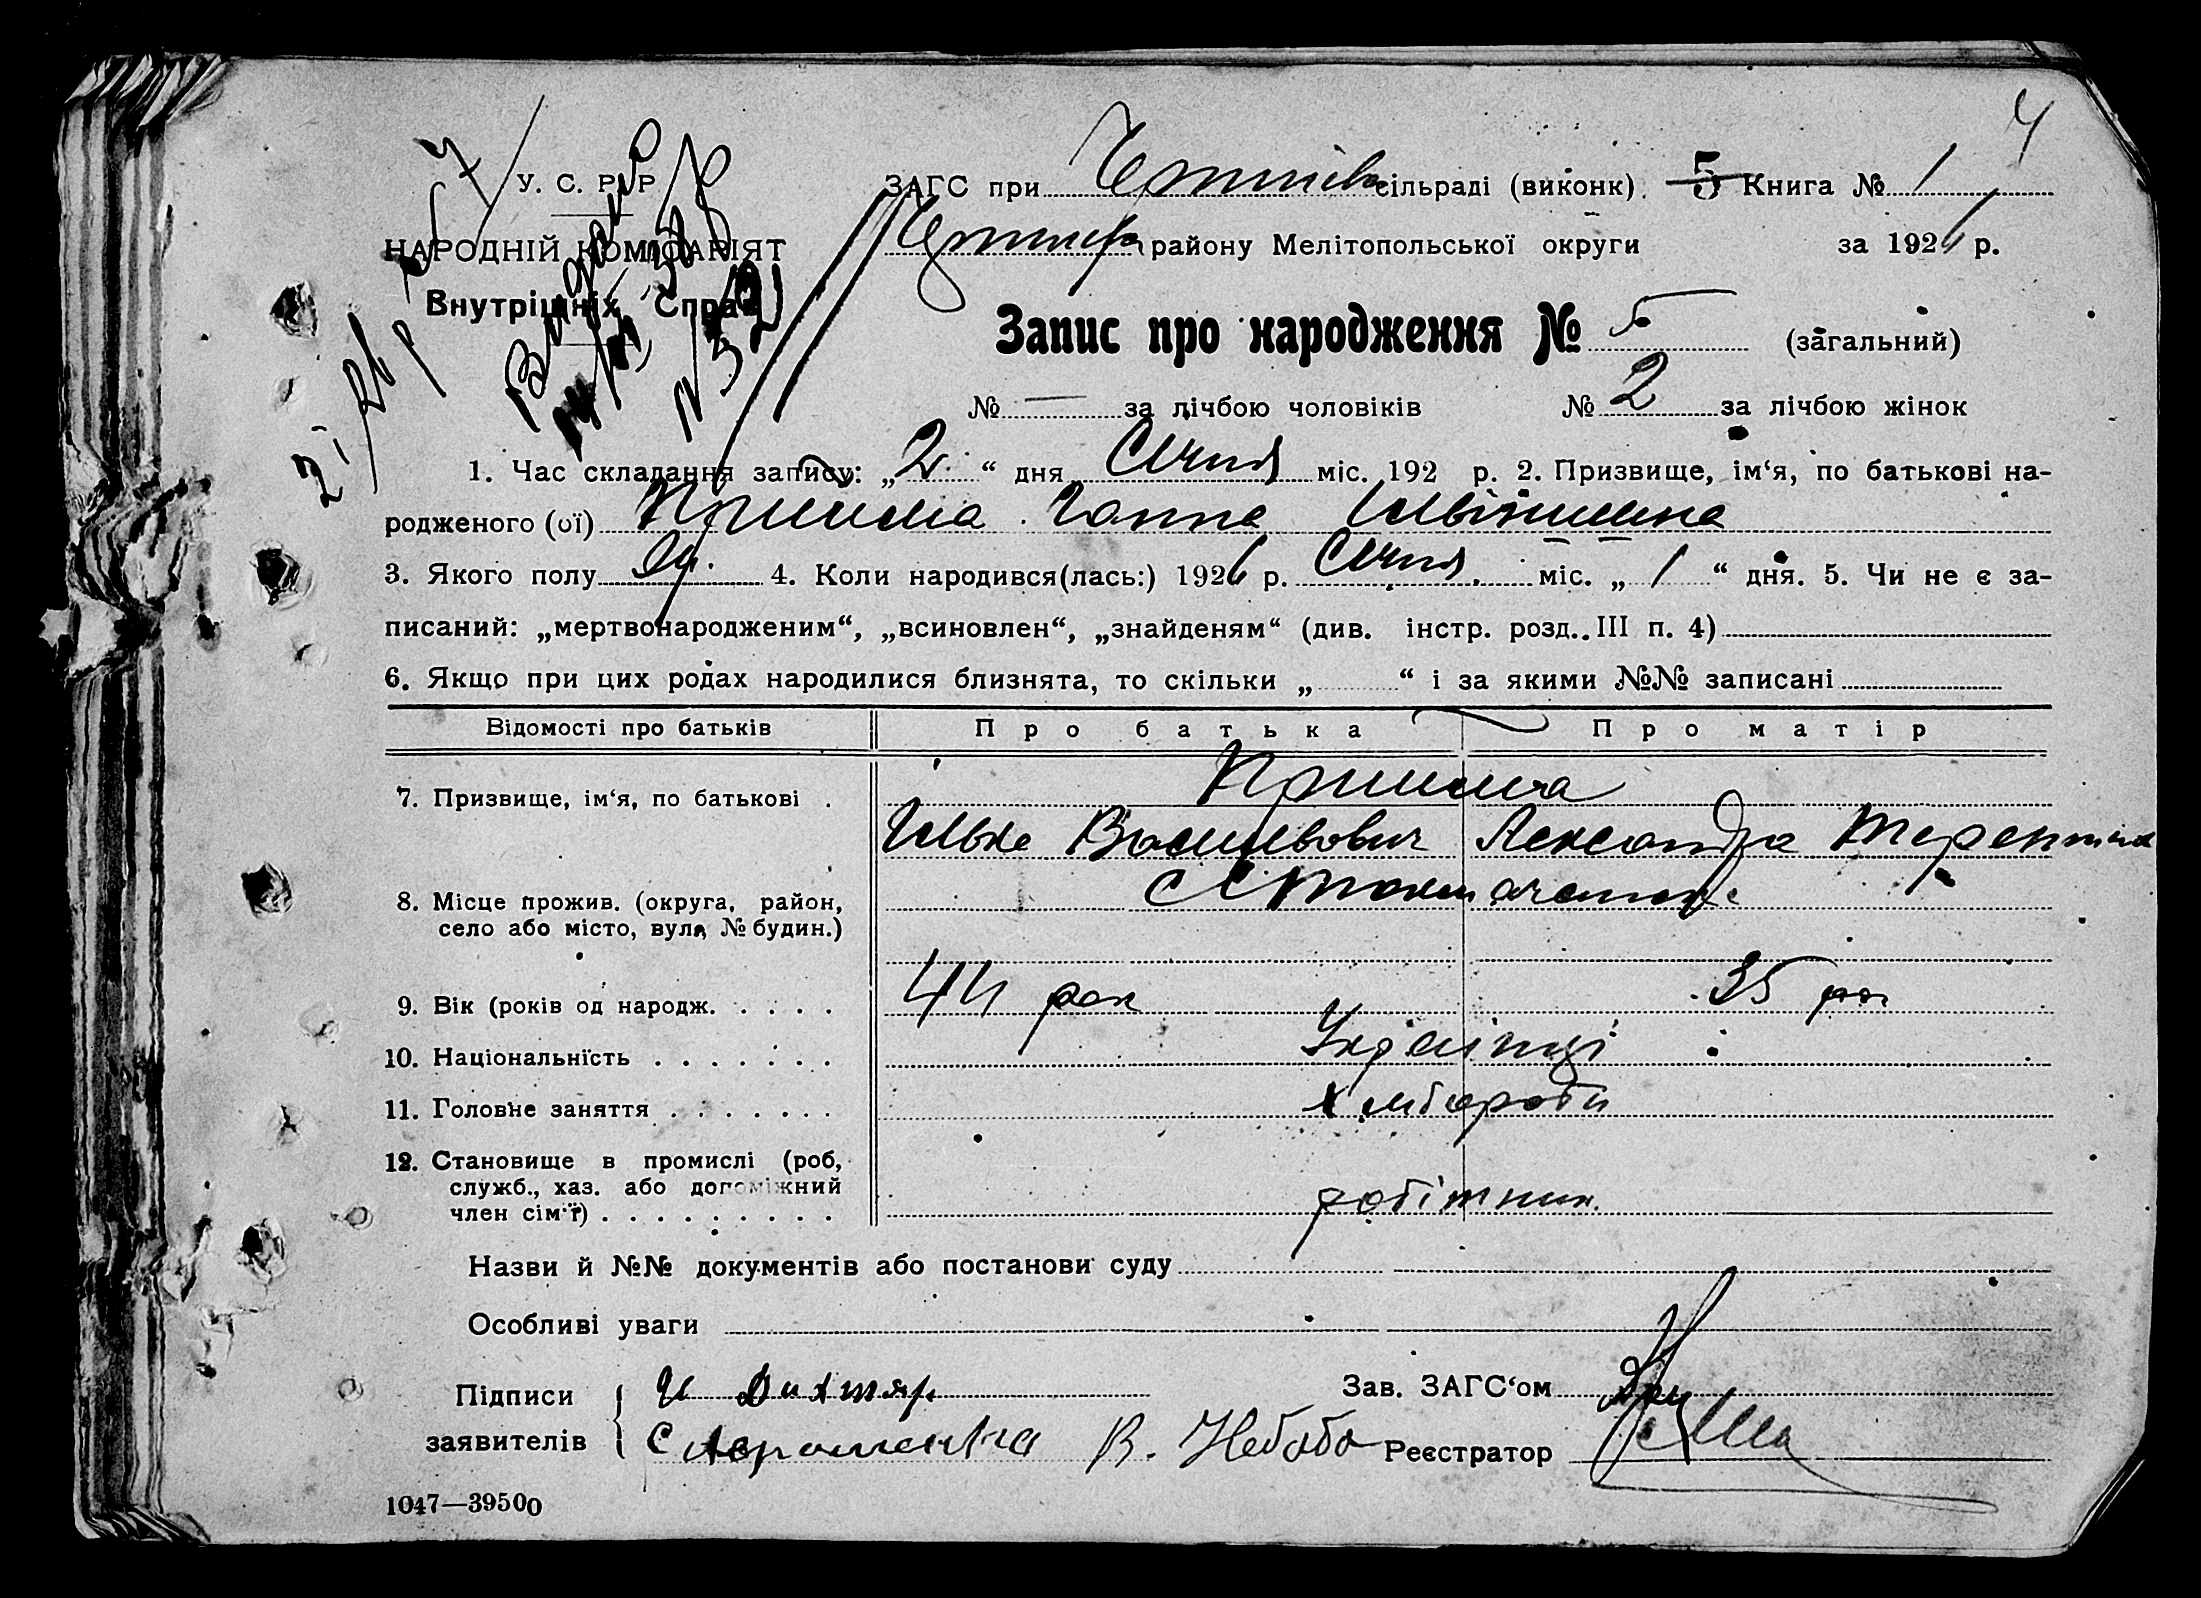 4
У. С. Р Р
ЗАГС при сільраді (виконк). 5 Книга № 1
НАРОДНІЙ КОМІСАРІЯТ
району Мелітопольської округи за 1926 р.
Внутрішніх Справ
Видана
Запис про народження № 5 (загальний)
№ — за лічбою чоловіків № 2 за лічбою жінок
1. Час складання запису: „ 2 “ дня Січня міс. 192 р. 2. Призвище, ім‘я, по батькові на-
родженого (ої) Ганна
3. Якого полу 4. Коли народився(лась:) 1926 р. Січня міс. „ 1 “ дня. 5. Чи не є за-
писаний: „мертвонародженим“, „всиновлен“, „знайденям“ (див. інстр. розд. III п. 4)
6. Якщо при цих родах народилися близнята, то скільки „ “ і за якими №№ записані
Відомості про батьків Про батька Про матір
7. Призвище, ім‘я, по батькові .
Илько Васильович Александра
8. Місце прожив. (округа, район,
село або місто, вул., № будин.)
9. Вік (років од народж. . . . . 44 рок 35 рок
10. Національність . . . . . . . Українці
11. Головне заняття . . . . . . . хлібороби
12. Становище в промислі (роб,
служб., хаз. або допоміжний
член сім‘ї) . . . . . . . . . робітник
Назви й №№ документів або постанови суду
Особливі уваги
Підписи И Дихтяр Зав. ЗАГС‘ом
заявителів В. Небаба Реєстратор
1047—39500